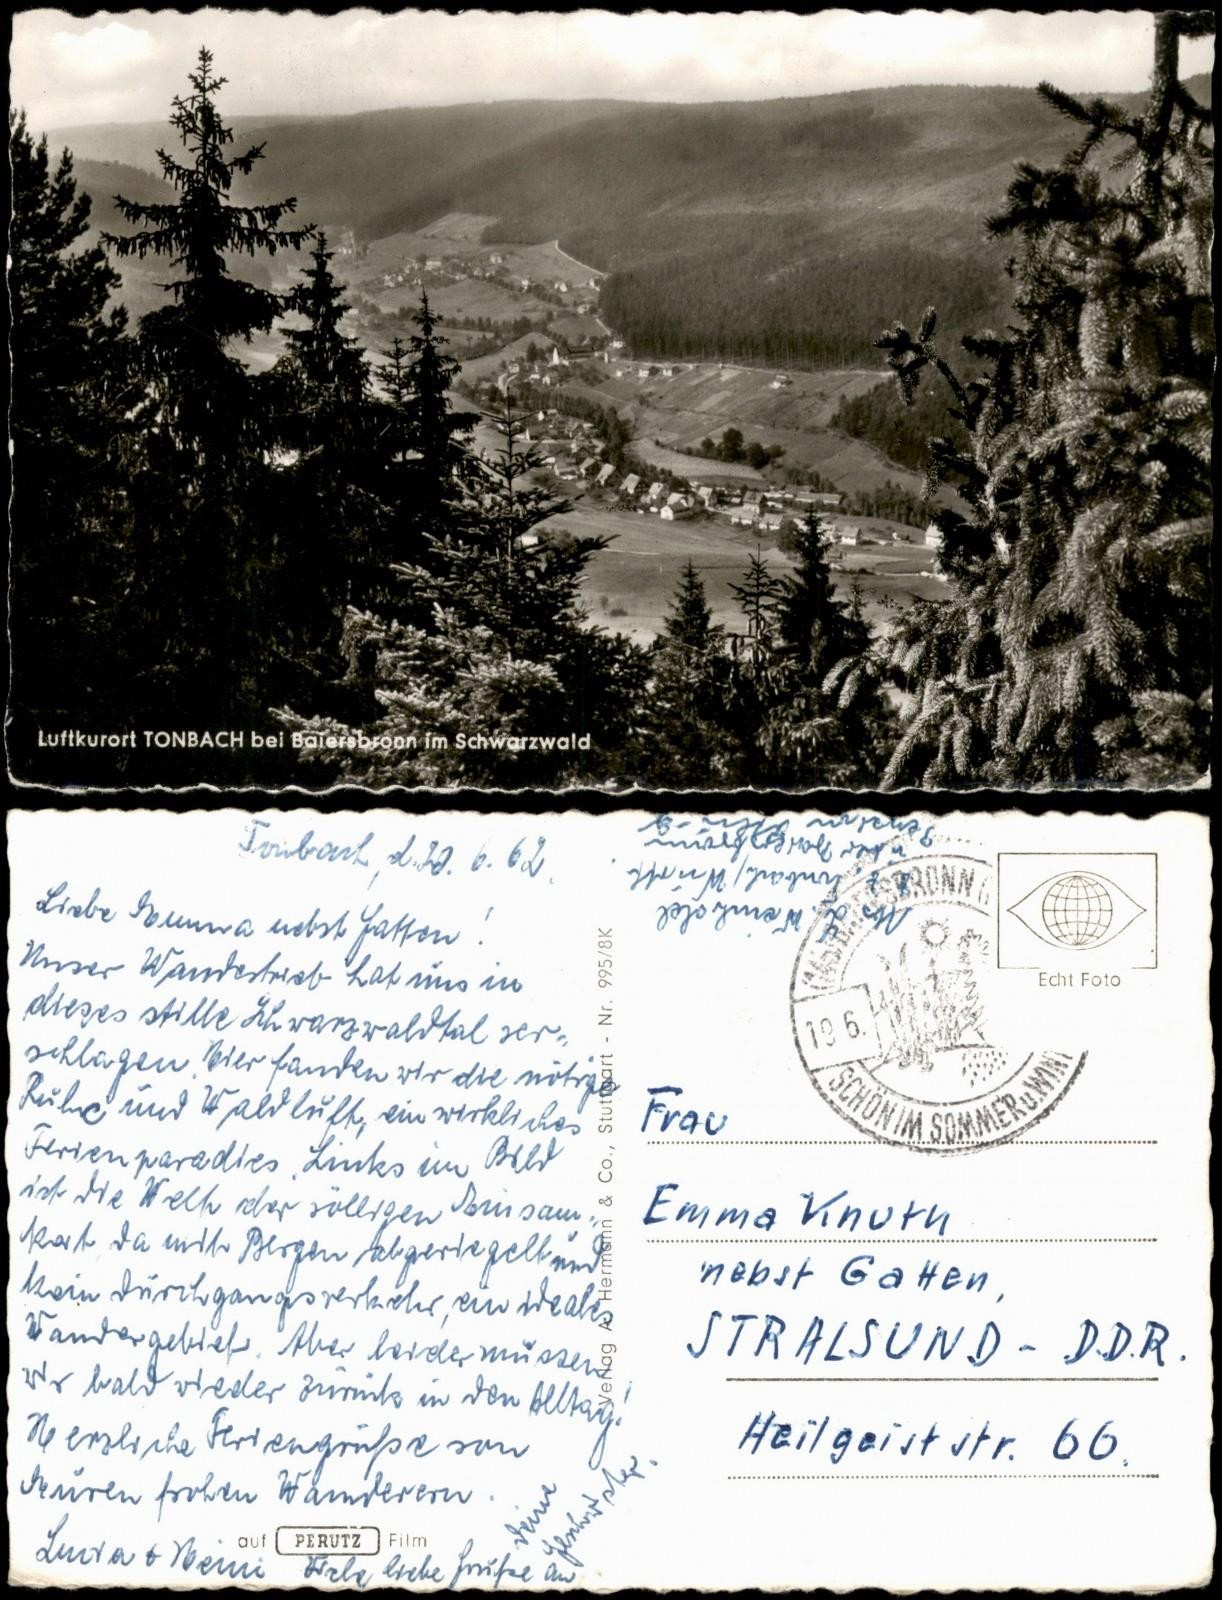 Luftkurort TONBACH bei Baiersbronn im Schwarzwald
Tonbach, d. 6. 62.
Liebe Emma nebst Gatten!
Unser Wandertrieb hat uns in
dieses stille Schwarzwaldtal ver-
schlagen. Hier fanden wir die nötige
Ruhe und Waldluft, ein wirkliches
Ferienparadies. Links im Bild
ist die Welt der völligen Einsam-
keit, da mit Bergen abgeriegelt und
kein Durchgangsverkehr, ein ideales
Wandergebiet. Aber leider müssen
wir bald wieder zurück in den Alltag!
Herzliche Feriengrüße von
Euren frohen Wanderern.
Heini Viele liebe Grüße an
Deine
Geschwister.
auf PERUTZ Film
Verlag A. Hermann & Co., Stuttgart - Nr. 995/8K
Weinhold
Tonbach/Württ
über Baiersbronn
Pension
BAIERSBRONN
19.6.
SCHÖN IM SOMMER U. WIN
Echt Foto
Frau
Emma Knuth
nebst Gatten,
STRALSUND - D.D.R.
Heilgeiststr. 66.